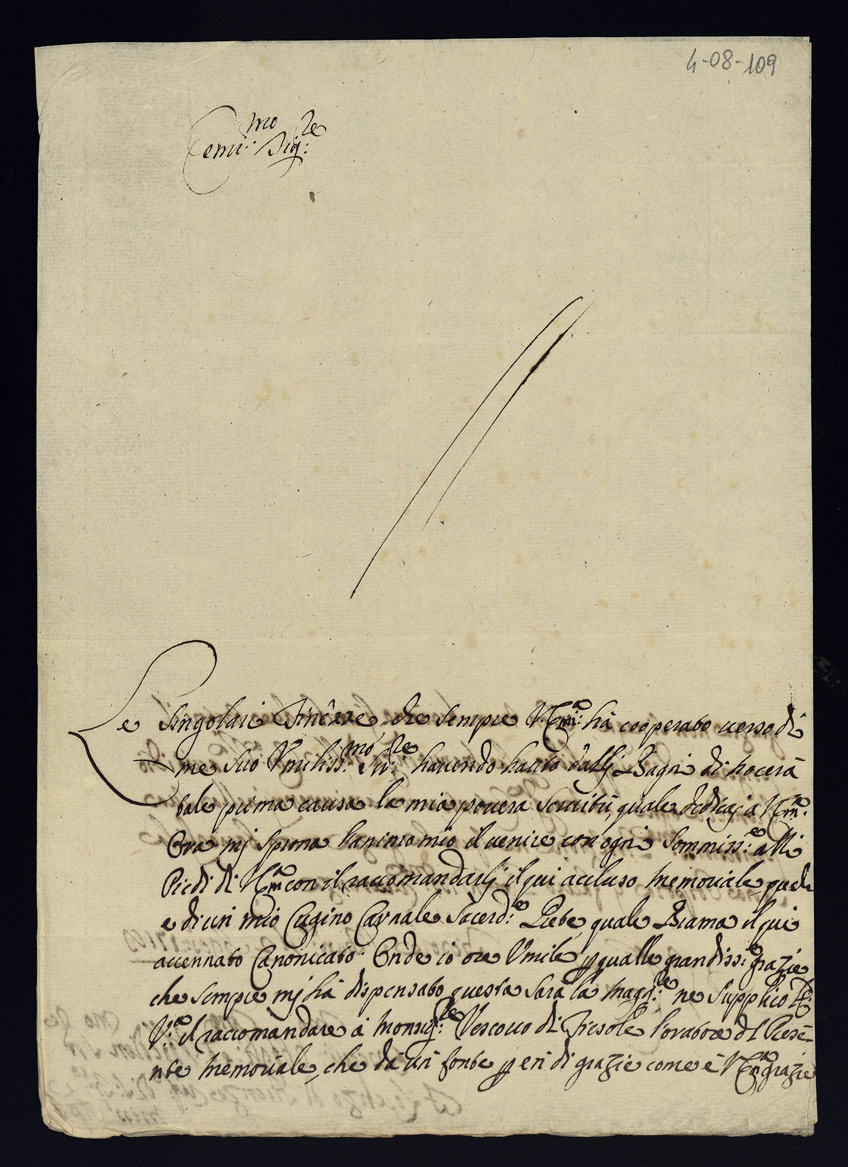 4-08-109
Em.mo Sig.re
Le Singolari finezze che sempre V. Em.za hà cooperato verso di
me suo Vmiliss.mo Ser.re havendo hauto dalli Bagni di nocera
tale prima causa la mia povera Servitù, quale dedicaj a V. Em.za.
Ora mj sprona l'animo mio il venire con ogni sommis.ne alli
Piedi di V. Em.za con il raccomandarlj il qui accluso memoriale quale
e di un mio Cugino Carnale Sacerd.te Prete quale Brama il qui
accennato Canonicato. Onde io ore Vmile p quelle grandiss.e grazie
che sempre mj hà dispensato questa sarà la magg.re ne supplico
V.a il raccomandare a Monsig.re Vescovo di Fiesole l'oratore del Prese-
nte memoriale, che da un fonte p eri di grazie come è V. Em.za grazie